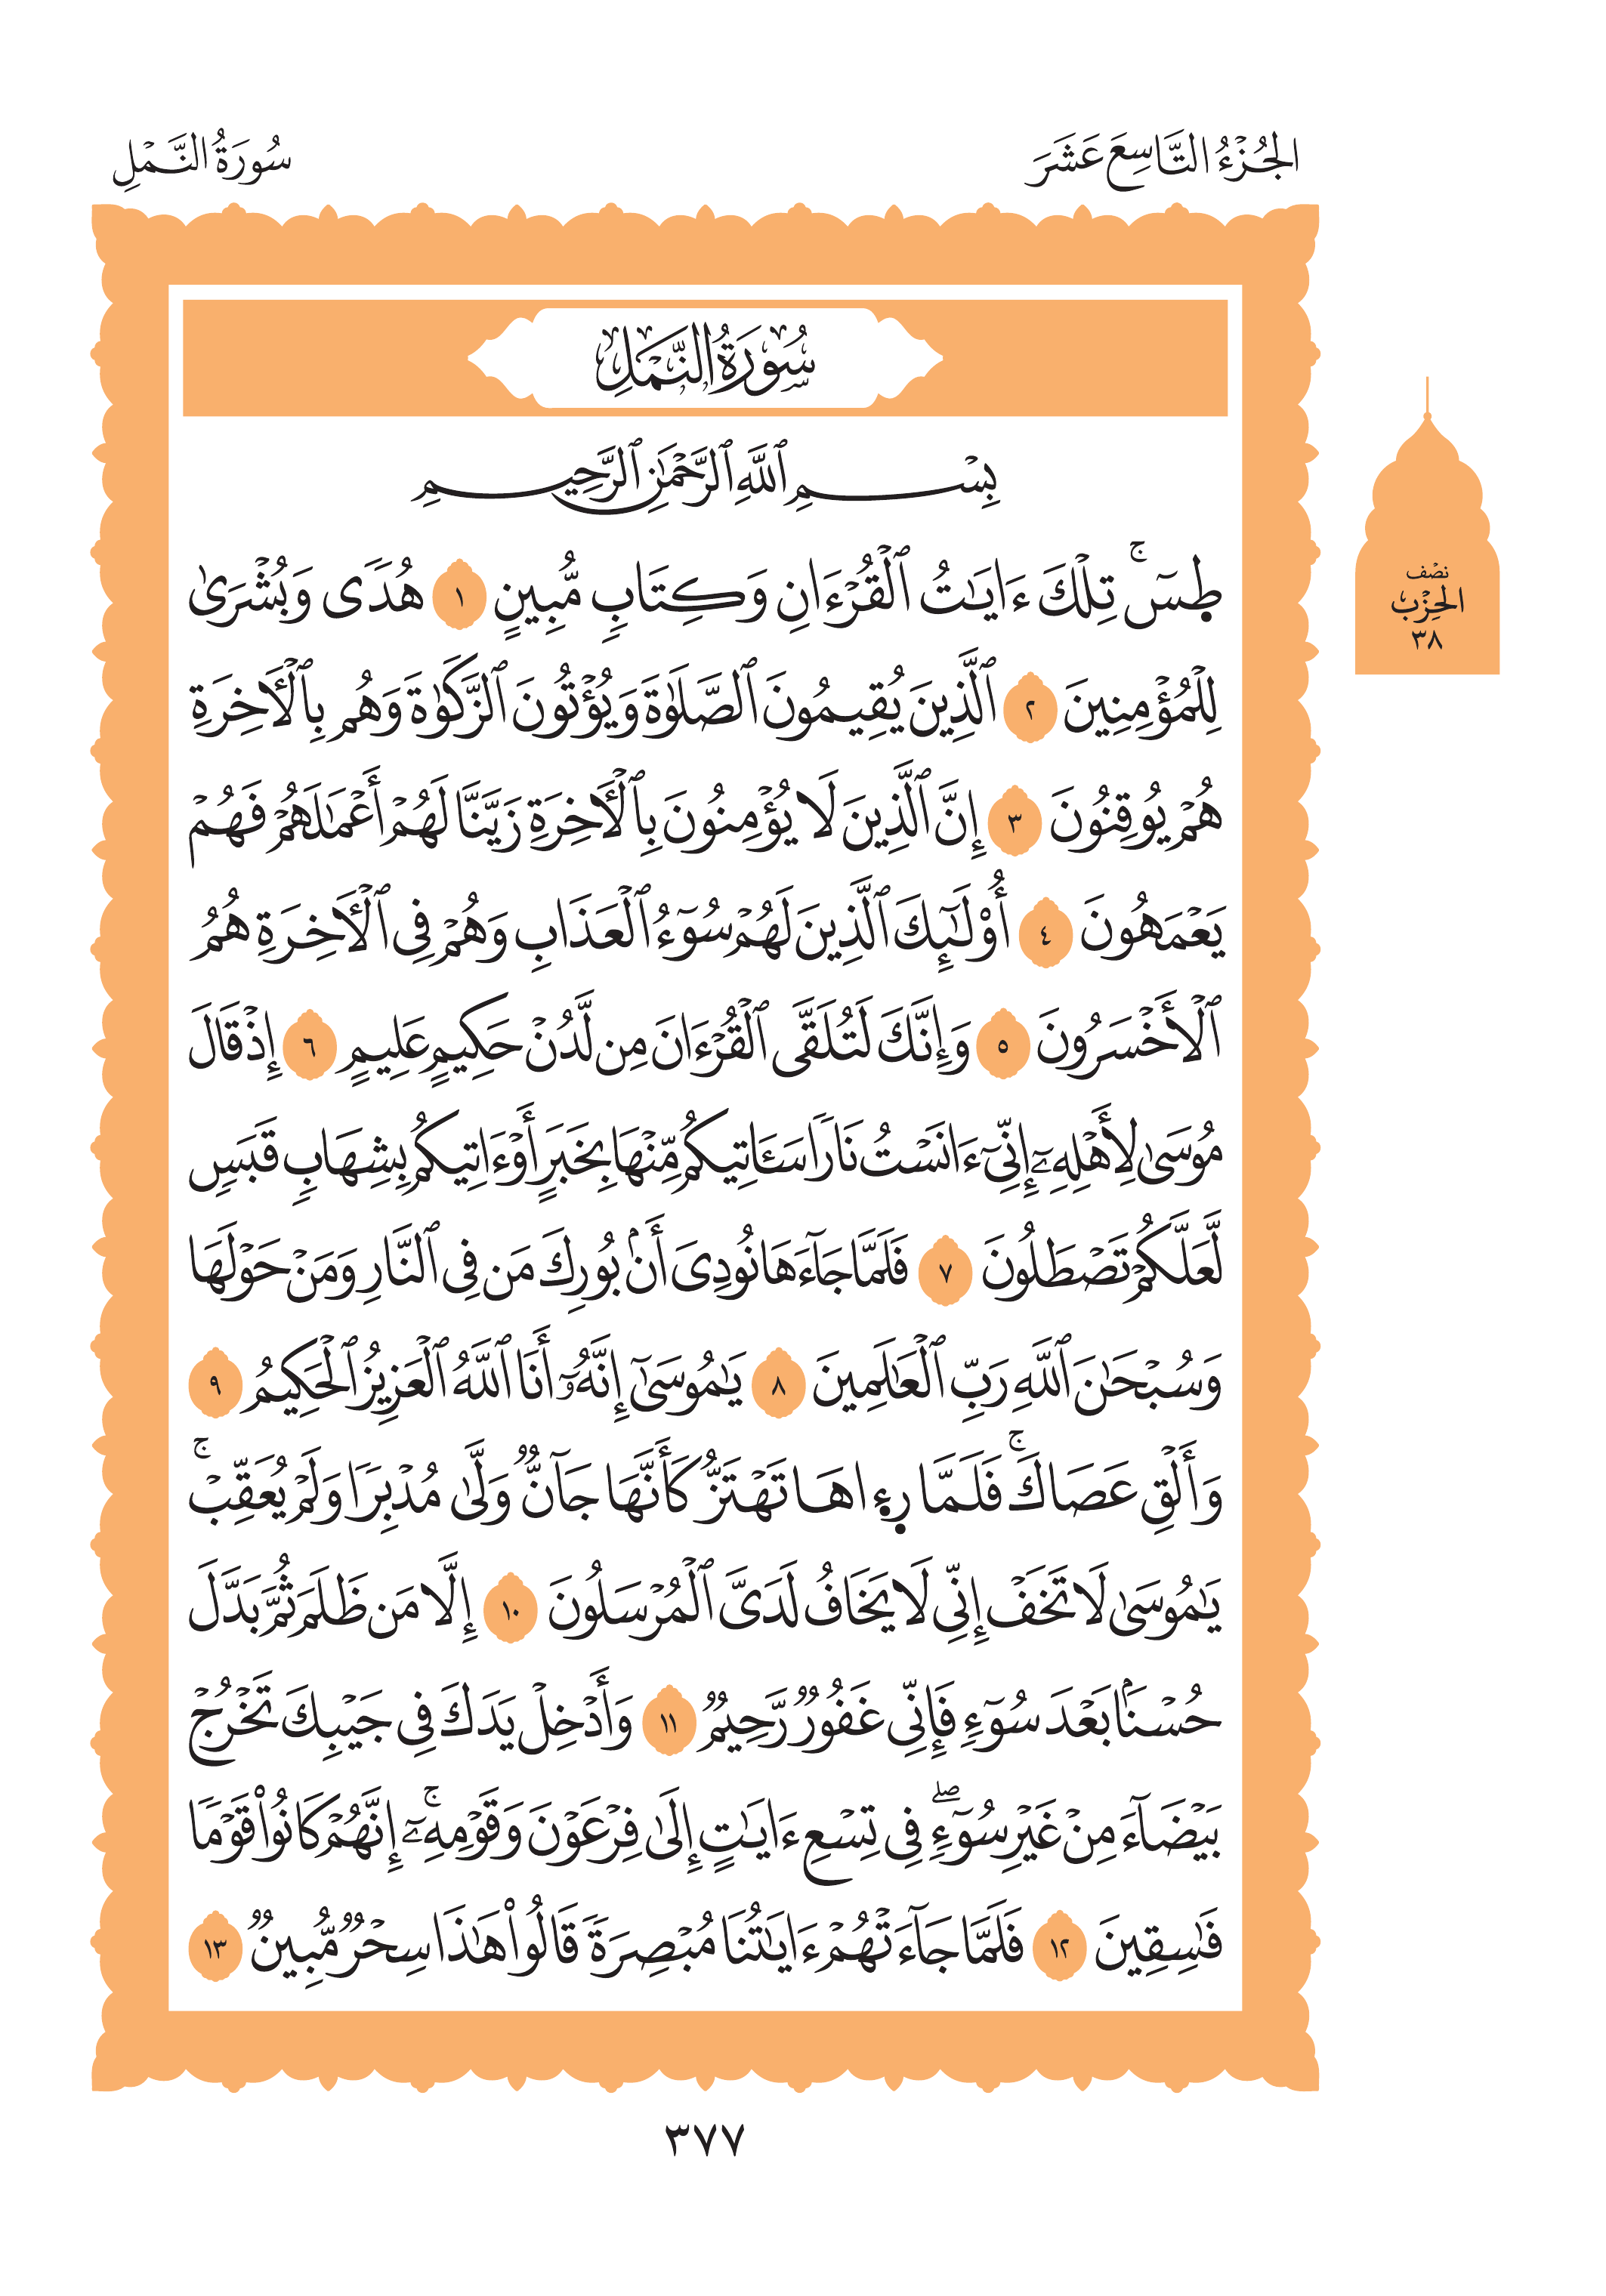 الجُزْءُ التَّاسِعَ عَشَرَ
سُورَةُ النَّمْلِ
سُورَةُ النَّمْلِ
بِسْمِ ٱللَّهِ ٱلرَّحْمَٰنِ ٱلرَّحِيمِ
طِسٓۚ تِلْكَ ءَايَٰتُ ٱلْقُرْءَانِ وَكِتَابٖ مُّبِينٍ ١ هُدٗى وَبُشْرَىٰ
لِلْمُؤْمِنِينَ ٢ ٱلَّذِينَ يُقِيمُونَ ٱلصَّلَوٰةَ وَيُؤْتُونَ ٱلزَّكَوٰةَ وَهُم بِالْأٓخِرَةِ
هُمْ يُوقِنُونَ ٣ إِنَّ ٱلَّذِينَ لَا يُؤْمِنُونَ بِالْأٓخِرَةِ زَيَّنَّا لَهُمْ أَعْمَٰلَهُمْ فَهُمْ
يَعْمَهُونَ ٤ أُوْلَٰٓئِكَ ٱلَّذِينَ لَهُمْ سُوٓءُ ٱلْعَذَابِ وَهُمْ فِي ٱلْأٓخِرَةِ هُمُ
ٱلْأَخْسَرُونَ ٥ وَإِنَّكَ لَتُلَقَّى ٱلْقُرْءَانَ مِن لَّدُنْ حَكِيمٍ عَلِيمٍ ٦ إِذْ قَالَ
مُوسَىٰ لِأَهْلِهِۦٓ إِنِّيٓ ءَانَسْتُ نَارٗا سَـَٔاتِيكُم مِّنْهَا بِخَبَرٍ أَوْ ءَاتِيكُم بِشِهَابِ قَبَسٖ
لَّعَلَّكُمْ تَصْطَلُونَ ٧ فَلَمَّا جَآءَهَا نُودِيَ أَنۢ بُورِكَ مَن فِي ٱلنَّارِ وَمَنْ حَوْلَهَا
وَسُبْحَٰنَ ٱللَّهِ رَبِّ ٱلْعَٰلَمِينَ ٨ يَٰمُوسَىٰٓ إِنَّهُۥٓ أَنَا ٱللَّهُ ٱلْعَزِيزُ ٱلْحَكِيمُ ٩
وَأَلْقِ عَصَاكَۚ فَلَمَّا رِءِاهَا تَهْتَزُّ كَأَنَّهَا جَآنّٞ وَلَّىٰ مُدْبِرٗا وَلَمْ يُعَقِّبْۚ
يَٰمُوسَىٰ لَا تَخَفْ إِنِّي لَا يَخَافُ لَدَيَّ ٱلْمُرْسَلُونَ ١٠ إِلَّا مَن ظَلَمَ ثُمَّ بَدَّلَ
حُسْنَۢا بَعْدَ سُوٓءٖ فَإِنِّي غَفُورٞ رَّحِيمٞ ١١ وَأَدْخِلْ يَدَكَ فِي جَيْبِكَ تَخْرُجْ
بَيْضَآءَ مِنْ غَيْرِ سُوٓءٖۖ فِي تِسْعِ ءَايَٰتٍ إِلَىٰ فِرْعَوْنَ وَقَوْمِهِۦٓۚ إِنَّهُمْ كَانُواْ قَوْمٗا
فَٰسِقِينَ ١٢ فَلَمَّا جَآءَتْهُمْ ءَايَٰتُنَا مُبْصِرَةٗ قَالُواْ هَٰذَا سِحْرٞ مُّبِينٞ ١٣
نصف
الحِزْب
٣٨
٣٧٧